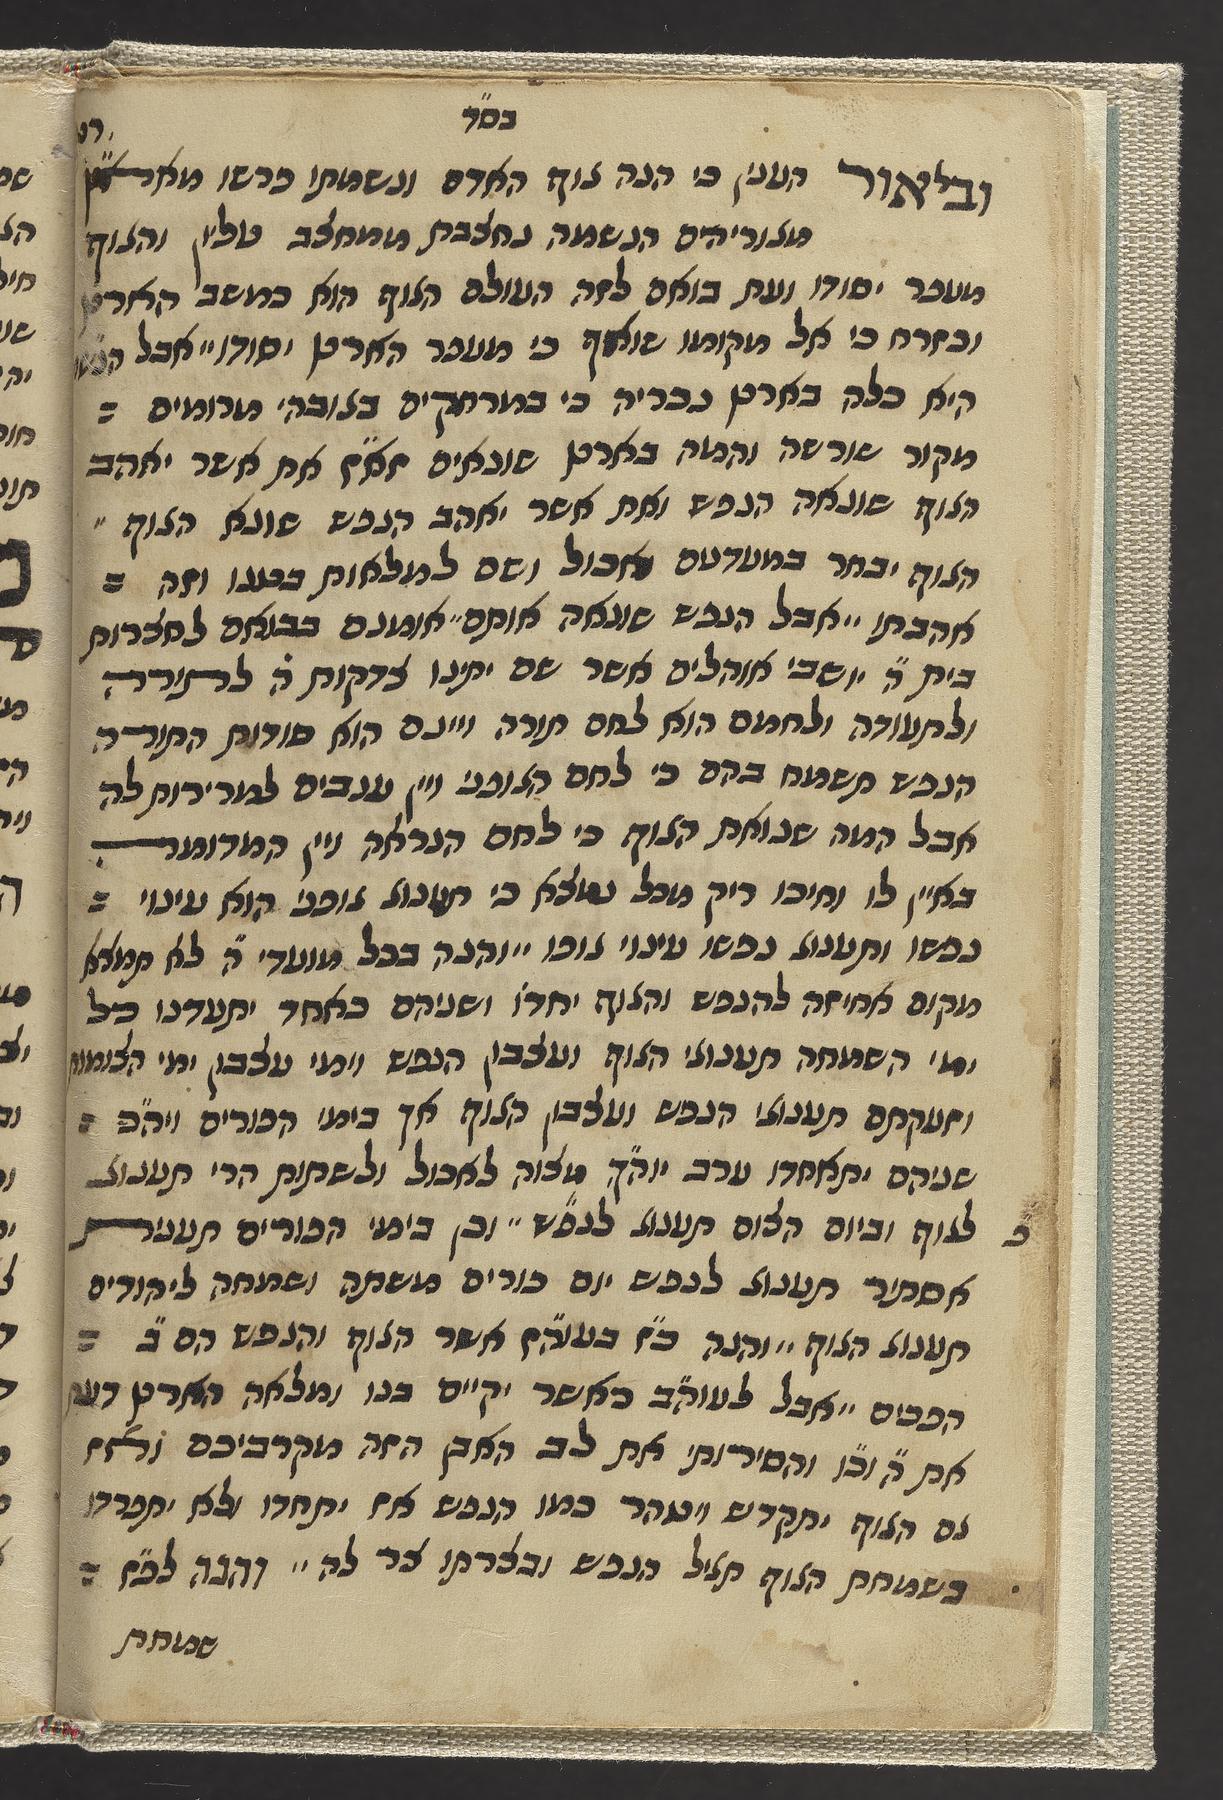 בס"ד
וביאור הענין כי הנה גוף האדם ונשמתו פרשו
מגוריהם הנשמה נחצבת ממחצב עליון והגוף
מעפר יסודו ועת בואם לזה העולם הגוף הוא כמשב הארץ
וכזרח כי אל מקומו שואף כי מעפר הארץ יסודו" אבל הנפש
היא כלה בארץ נכריה כי במרחקים בגובהי מרומים =
מקור שורשה והמה בארץ שונאים זא"ז את אשר יאהב
הגוף שונאה הנפש ואת אשר יאהב הנפש שונא הגוף "
הגוף יבחר במעדעם אכול ושם למלאות בטנו וזה =
אהבתו " אבל הנפש שונאה אותם" אומנם בבואם לחצרות
בית ה' יושבי אוהלים אשר שם יתינו צדקות ה' לתורה
ולתעודה ולחמם הוא לחם תורה ויינם הוא סודות התורה
הנפש תשמח בהם כי לחם הגופני ויין ענבים למרירות לה
אבל המה שנואת הגוף כי לחם הנראה ויין המדומה
באין לו וחיכו ריק מכל נמצא כי תענוג גופני הוא עינוי =
נפשו ותענוג נפשו עינוי גופו " והנה בכל מועדי ה' לא תמצא
מקום אחיזה להנפש והגוף יחדו ושניהם כאחד יתעדנו כל
ימי השמחה תענוגי הגוף ועצבון הנפש וימי עצבון ימי הצומות
וזעקתם תענוגי הנפש ועצבון הגוף אך בימי הפורים ויה"כ =
שניהם יתאחדו ערב יוה"ך מצוה לאכול ולשתות הרי תענוג
לגוף וביום הצום תענוג לנפש " וכן בימי הפורים תענית
אסתיר תענוג לנפש יום פורים משתה ושמחה ליהודים
תענוג הגוף " והנה כ"ז בעוה"ז אשר הגוף והנפש הם ב' =
הפכים " אבל לעוה"ב כאשר יקיים בנו ומלאה הארץ דעת
את ה' וכו' והסירותי את לב האבן הזה מקרביכם ואז
גם הגוף יתקדש ויטהר כמו הנפש אז יתחדו ולא יתפרדו
בשמחת הגוף תגיל הנפש ובצרתו צר לה " והנה לפ"ז =
שמחת